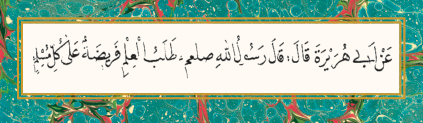 عَنْ اَبِي هُرَيْرَةَ قَالَ: قَالَ رَسُولُ اللهِ صلعم، طَلَبُ الْعِلْمِ فَرِيضَةٌ عَلٰى كُلِّ مُسْلِمٍ